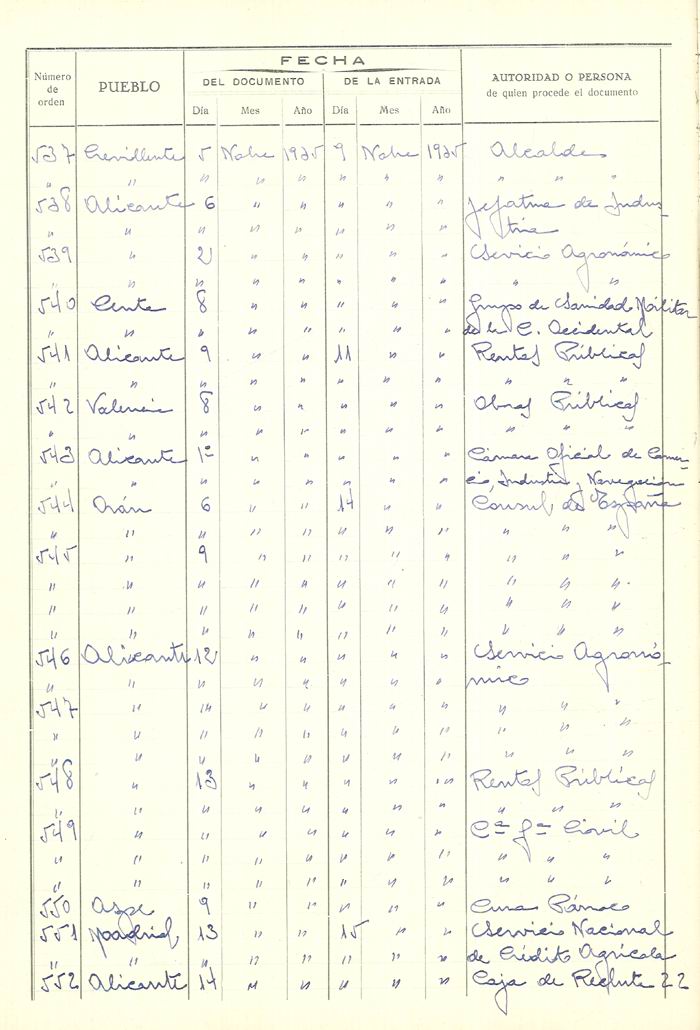 FECHA
Número de orden PUEBLO DEL DOCUMENTO DE LA ENTRADA AUTORIDAD O PERSONA de quien procede el documento
Día Mes Año Día Mes Año
537 Crevillente 5 Nobre 1935 9 Nobre 1935 Alcalde
" " " " " " " " " " "
538 Alicante 6 " " " " " Jefatura de Indus-
" " " " " " " " tria
539 " 2 " " " " " Servicio Agronómico
" " " " " " " " " "
540 Ceuta 8 " " " " " Grupo de Sanidad Militar
" " " " " " " " de la C. Occidental
541 Alicante 9 " " 11 " " Rentas Públicas
" " " " " " " " " " "
542 Valencia 8 " " " " " Obras Públicas
" " " " " " " " " " "
543 Alicante 1º " " " " " Cámara Oficial de Comer-
" " " " " " " " cio, Industria y Navegación
544 Orán 6 " " 14 " " Consul de España
" " " " " " " " " " "
545 " 9 " " " " " " " "
" " " " " " " " " " "
" " " " " " " " " " "
" " " " " " " " " " "
546 Alicante 12 " " " " " Servicio Agronó-
" " " " " " " " mico
547 " " " " " " " " " "
" " " " " " " " " " "
" " " " " " " " " "
548 " 13 " " " " " Rentas Públicas
" " " " " " " " " " "
549 " " " " " " " Cª Gª Civil
" " " " " " " " " " "
" " " " " " " " " " "
550 Aspe 9 " " " " " Cura Párroco
551 Madrid 13 " " 15 " " Servicio Nacional
" " " " " " " " de Crédito Agrícola
552 Alicante 14 " " " " " Caja de Recluta 22